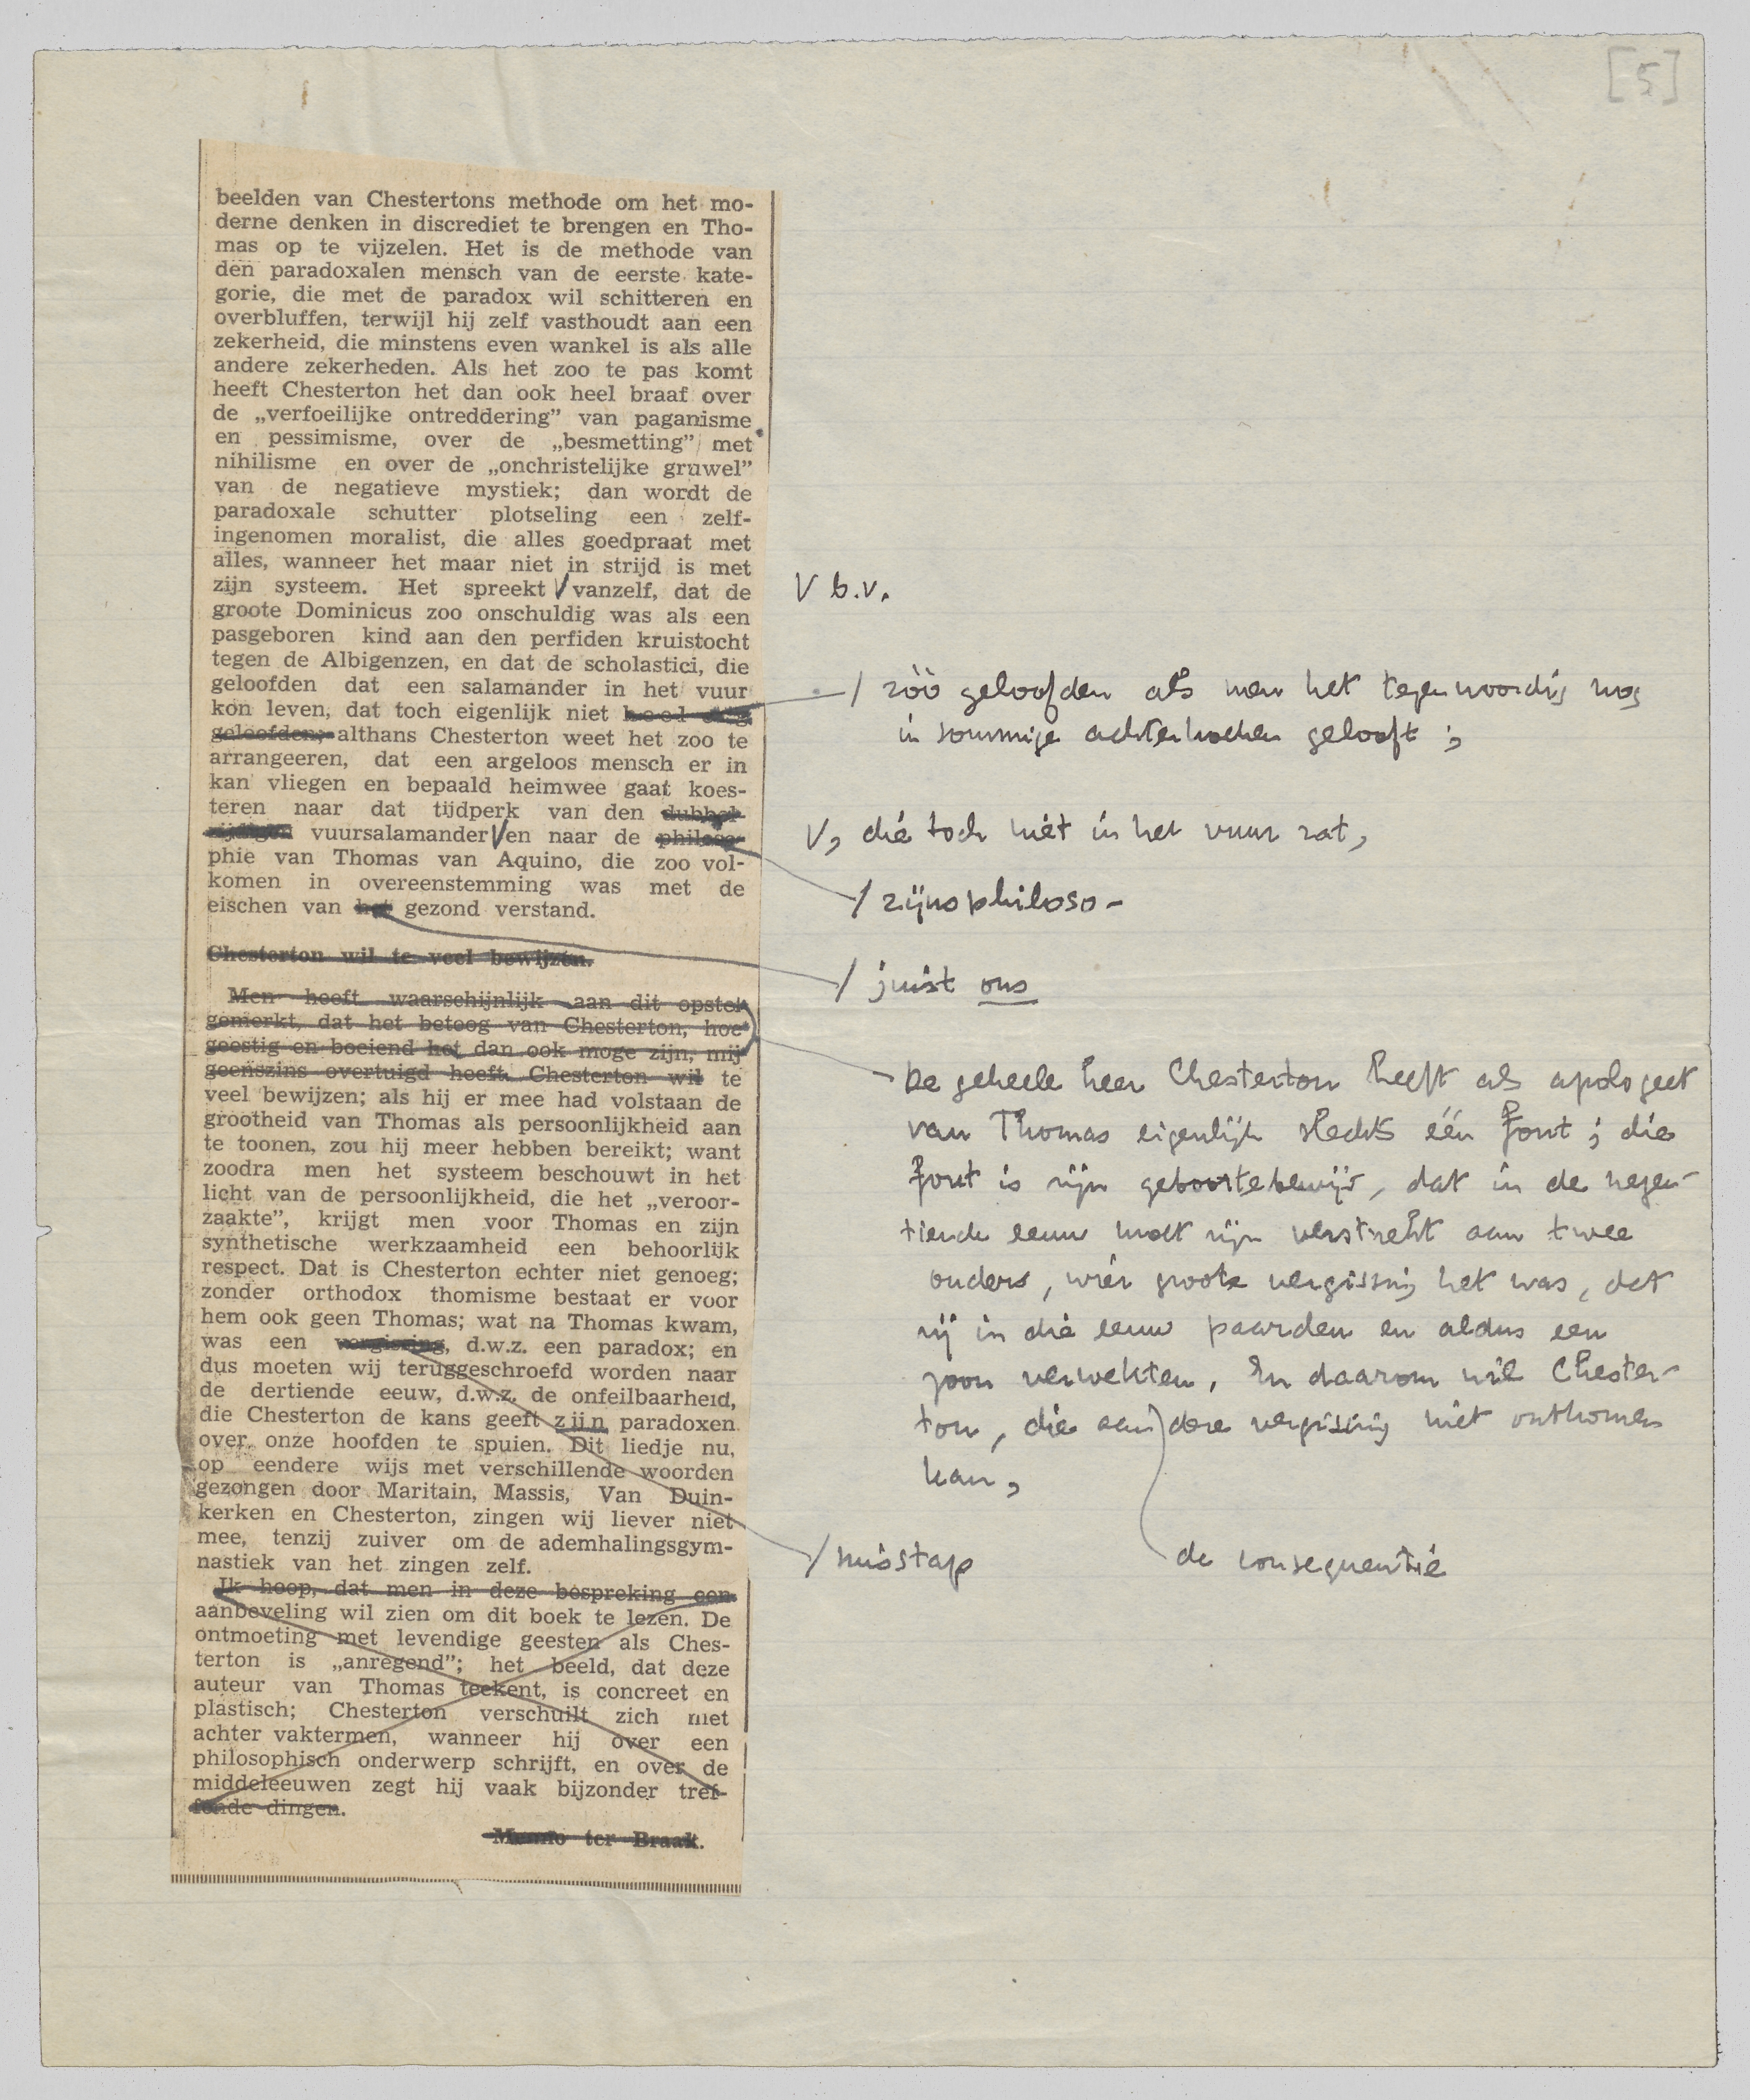 [5]
beelden van Chestertons methode om het mo-
derne denken in discrediet te brengen en Tho-
mas op te vijzelen. Het is de methode van
den paradoxalen mensch van de eerste kate-
gorie, die met de paradox wil schitteren en
overbluffen, terwijl hij zelf vasthoudt aan een
zekerheid, die minstens even wankel is als alle
andere zekerheden. Als het zoo te pas komt
heeft Chesterton het dan ook heel braaf over
de „verfoeilijke ontreddering” van paganisme
en pessimisme, over de „besmetting” met
nihilisme en over de „onchristelijke gruwel”
van de negatieve mystiek; dan wordt de
paradoxale schutter plotseling een zelf-
ingenomen moralist, die alles goedpraat met
alles, wanneer het maar niet in strijd is met
zijn systeem. Het spreekt V vanzelf, dat de
groote Dominicus zoo onschuldig was als een
pasgeboren kind aan den perfiden kruistocht
tegen de Albigenzen, en dat de scholastici, die
geloofden dat een salamander in het vuur
kon leven, dat toch eigenlijk niet heel
geloofden; althans Chesterton weet het zoo te
arrangeeren, dat een argeloos mensch er in
kan vliegen en bepaald heimwee gaat koes-
teren naar dat tijdperk van den dubbel-
vuursalamander V en naar de philoso-
phie van Thomas van Aquino, die zoo vol-
komen in overeenstemming was met de
eischen van het gezond verstand.
Chesterton wil te veel bewijzen.
Men heeft waarschijnlijk aan dit opstel
gemerkt, dat het betoog van Chesterton, hoe
geestig en boeiend het dan ook moge zijn, mij
geenszins overtuigd heeft. Chesterton wil te
veel bewijzen; als hij er mee had volstaan de
grootheid van Thomas als persoonlijkheid aan
te toonen, zou hij meer hebben bereikt; want
zoodra men het systeem beschouwt in het
licht van de persoonlijkheid, die het „veroor-
zaakte”, krijgt men voor Thomas en zijn
synthetische werkzaamheid een behoorlijk
respect. Dat is Chesterton echter niet genoeg;
zonder orthodox thomisme bestaat er voor
hem ook geen Thomas; wat na Thomas kwam,
was een vergissing, d.w.z. een paradox; en
dus moeten wij teruggeschroefd worden naar
de dertiende eeuw, d.w.z. de onfeilbaarheid,
die Chesterton de kans geeft zijn paradoxen
over onze hoofden te spuien. Dit liedje nu,
op eendere wijs met verschillende woorden
gezongen door Maritain, Massis, Van Duin-
kerken en Chesterton, zingen wij liever niet
mee, tenzij zuiver om de ademhalingsgym-
nastiek van het zingen zelf.
Ik hoop, dat men in deze bespreking een
aanbeveling wil zien om dit boek te lezen. De
ontmoeting met levendige geesten als Ches-
terton is „anregend”; het beeld, dat deze
auteur van Thomas teekent, is concreet en
plastisch; Chesterton verschuilt zich niet
achter vaktermen, wanneer hij over een
philosophisch onderwerp schrijft, en over de
middeleeuwen zegt hij vaak bijzonder tref-
fende dingen.
Menno ter Braak.
V b.v.
/ zóó geloofden als men het tegenwoordig nog
in sommige achterhoeken gelooft ;
V, die toch niet in het vuur zat,
/ zijns philoso-
/ juist ons
De geheele heer Chesterton heeft als apologeet
van Thomas eigenlijk slechts één fout ; die
fout is zijn geboortebewijs, dat in de negen-
tiende eeuw moet zijn verstrekt aan twee
ouders, wier groote vergissing het was, dat
zij in die eeuw paarden en aldus een
zoon verwekten. En daarom wil Chester-
ton, die aan) deze vergissing niet ontkomen
kan,
de consequentie
/ misstap